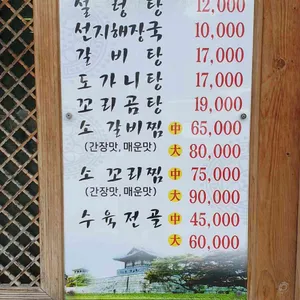 설 렁 탕 12,000
선지해장국 10,000
갈 비 탕 17,000
도가니탕 17,000
꼬리곰탕 19,000
소 갈비찜 中 65,000
(간장맛, 매운맛) 大 80,000
소 꼬리찜 中 75,000
(간장맛, 매운맛) 大 90,000
수육전골 中 45,000
大 60,000